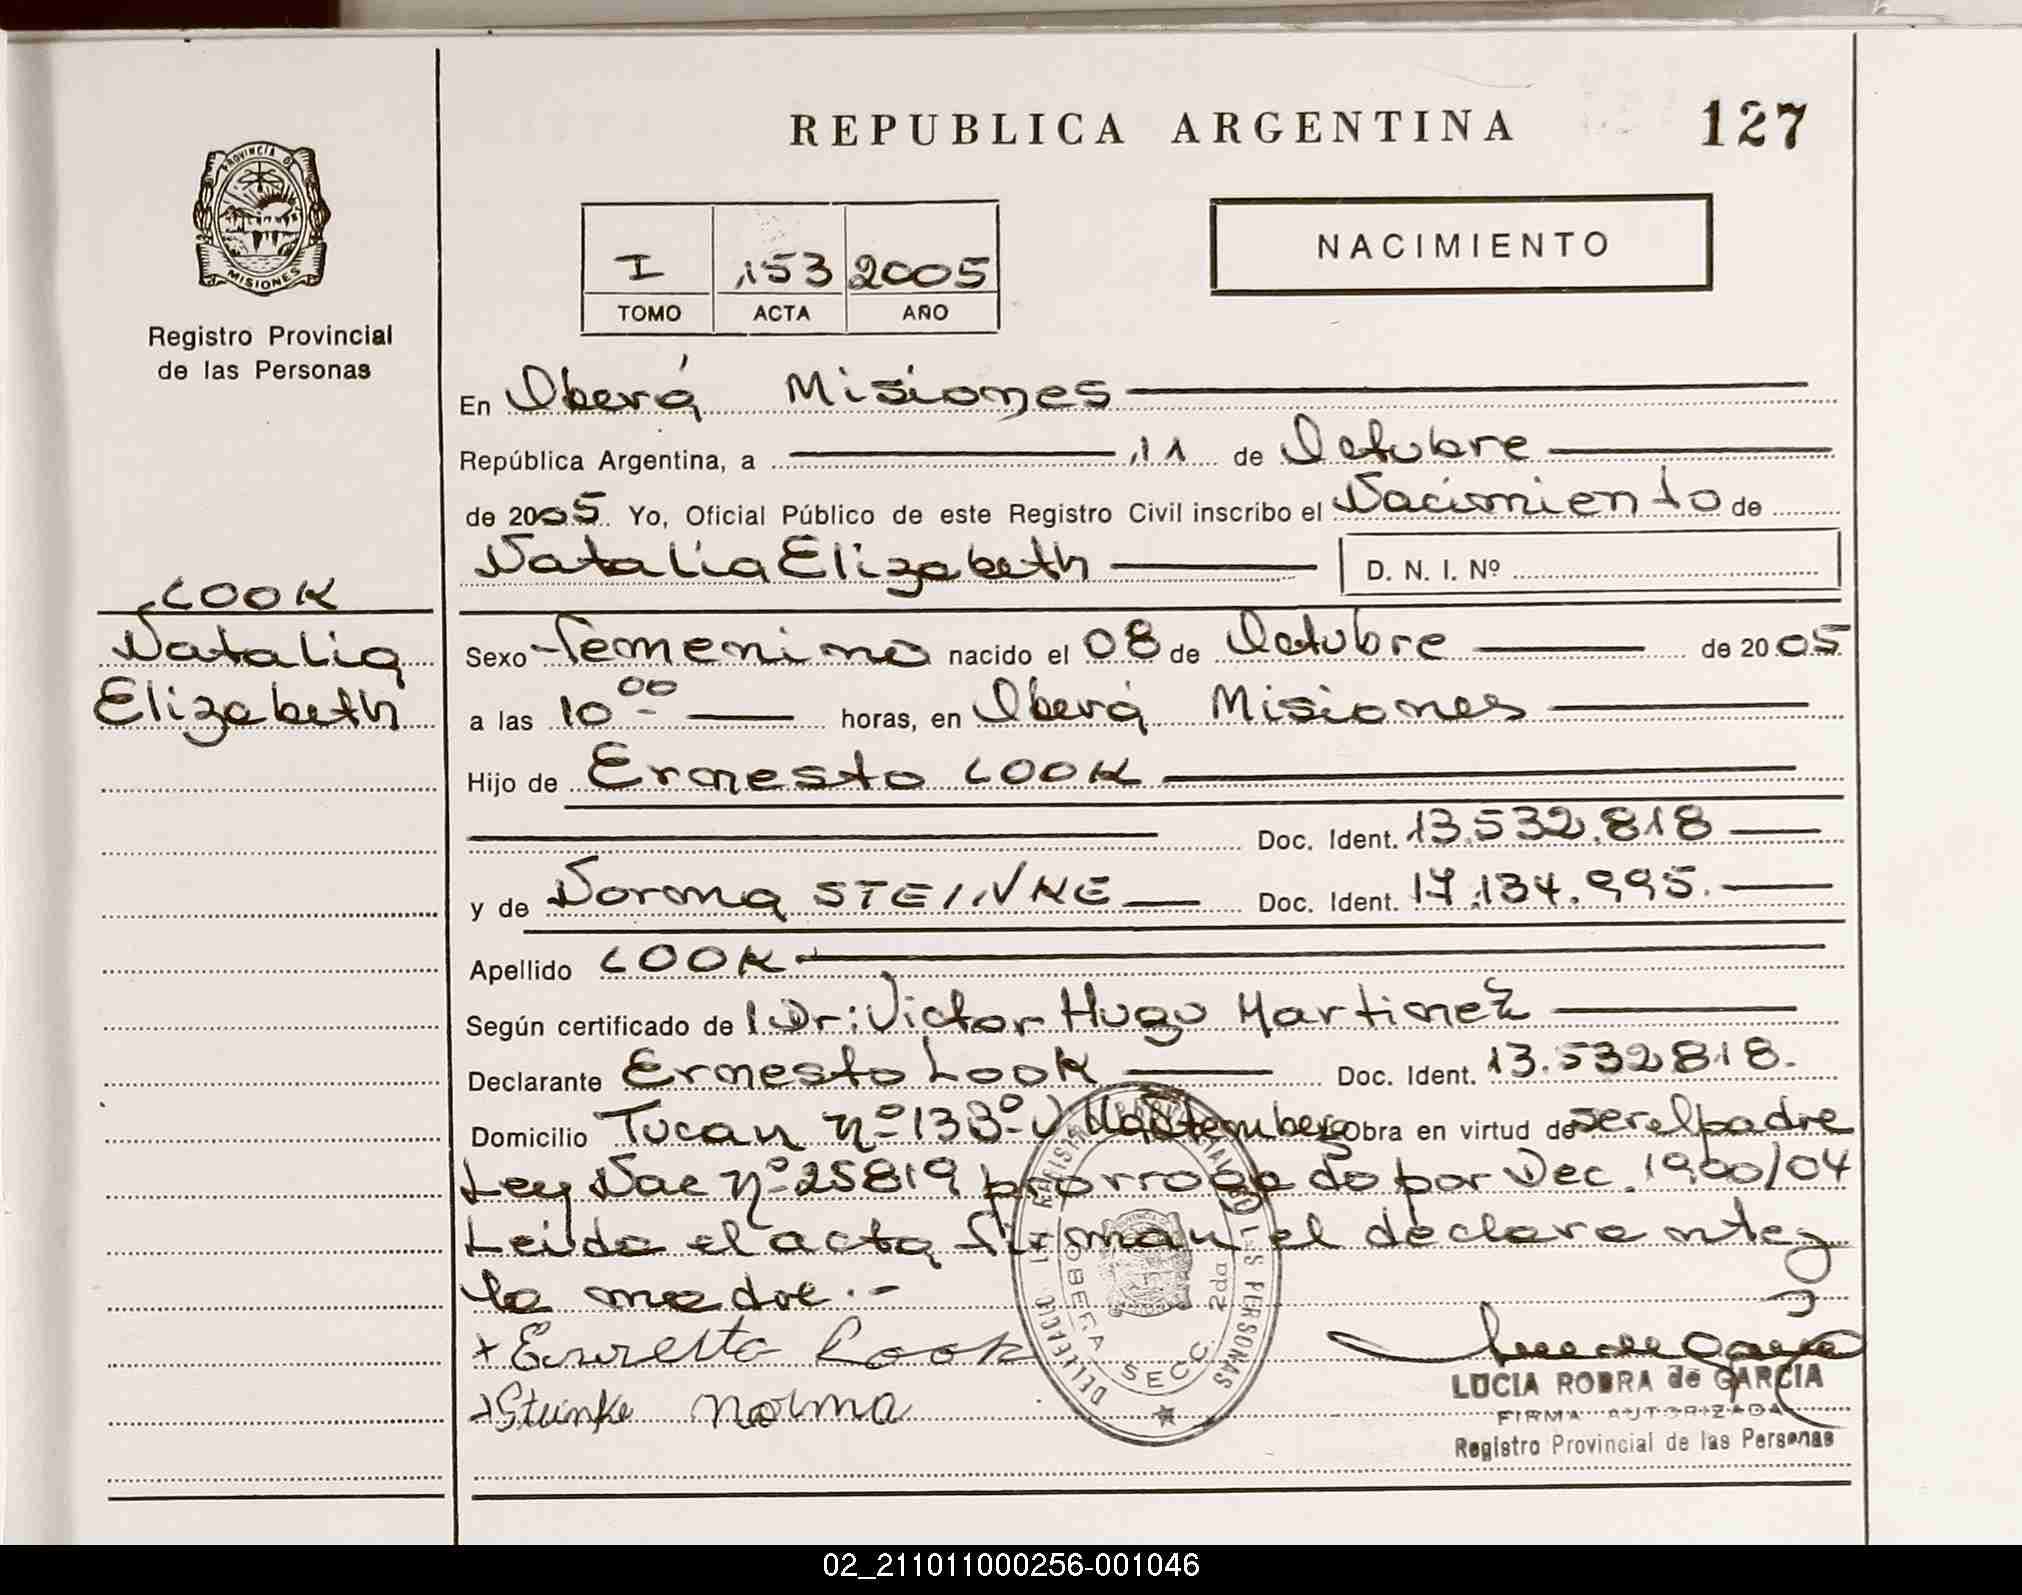 REPUBLICA ARGENTINA
127
PROVINCIA DE
MISIONES
Registro Provincial
de las Personas
I 153 2005
TOMO ACTA AÑO
NACIMIENTO
En Oberá Misiones
República Argentina, a 11 de Octubre
de 2005 Yo, Oficial Público de este Registro Civil inscribo el Nacimiento de
Natalia Elizabeth D. N. I. Nº
LOOK
Natalia
Elizabeth
Sexo Femenino nacido el 08 de Octubre de 2005
a las 10 00 horas, en Oberá Misiones
Hijo de Ernesto LOOK
Doc. Ident. 13.532.818
y de Norma STEINKE Doc. Ident. 17.134.995.
Apellido LOOK
Según certificado de Dr: Victor Hugo Martinez
Declarante Ernesto Look Doc. Ident. 13.532818.
Domicilio Tucan nº 133º Obra en virtud de ser el padre
Ley Nac nº 25819 prorrogado por Dec. 1900/04
Leida el acta firman el declarante y
la madre.-
+ Ernesto Look
+ Steinke Norma
DELEGACIO
OBERA SECC. 2da
LUCIA ROBRA de GARCIA
FIRMA AUTORIZADA
Registro Provincial de las Personas
02_211011000256-001046